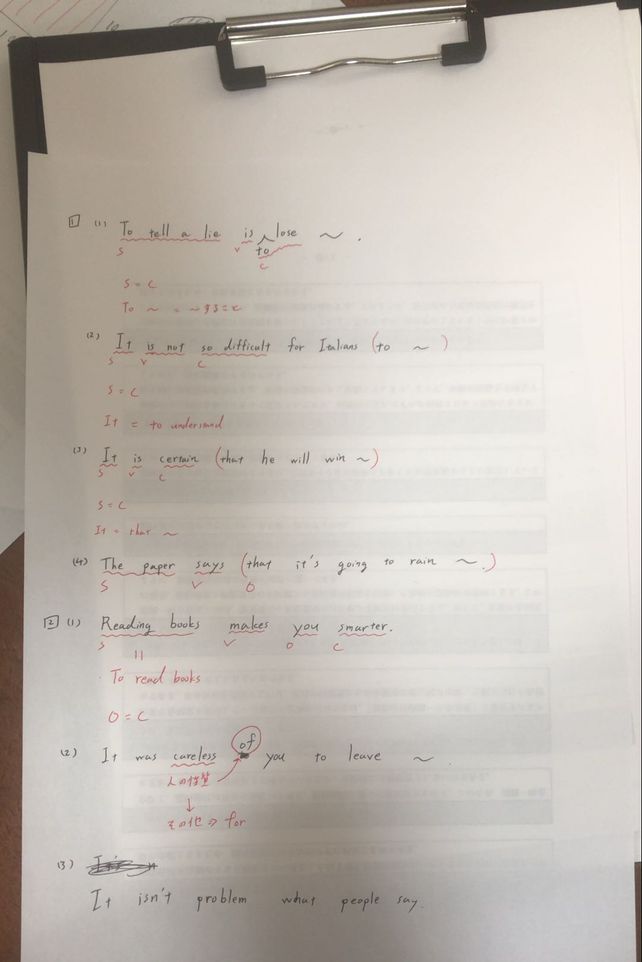 1 (1) To tell a lie is lose ~.
to
S V C
S = C
To ~ = ~すること
(2) It is not so difficult for Italians (to ~ )
S V C
S = C
It = to understand
(3) It is certain (that he will win ~)
S V C
S = C
It = that ~
(4) The paper says (that it's going to rain ~.)
S V O
2 (1) Reading books makes you smarter.
S V O C
To read books
O = C
(2) It was careless of you to leave ~.
人の性質
↓
その他 ⇒ for
(3)
It isn't problem what people say.